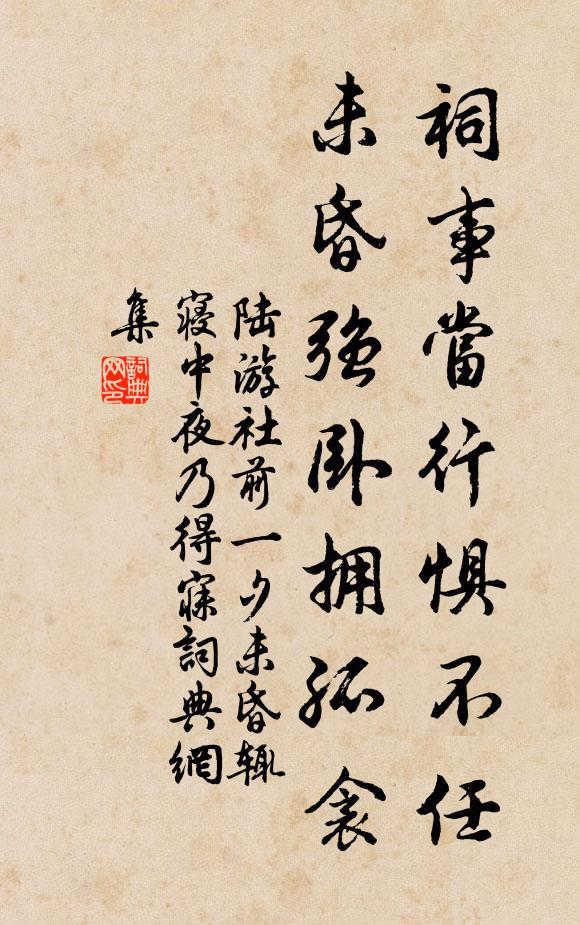 祠事當行懼不任
未昏強卧擁孤衾
陸游社前一夕未昏輒
寢中夜乃得寐詞典網
集
詞典
网印